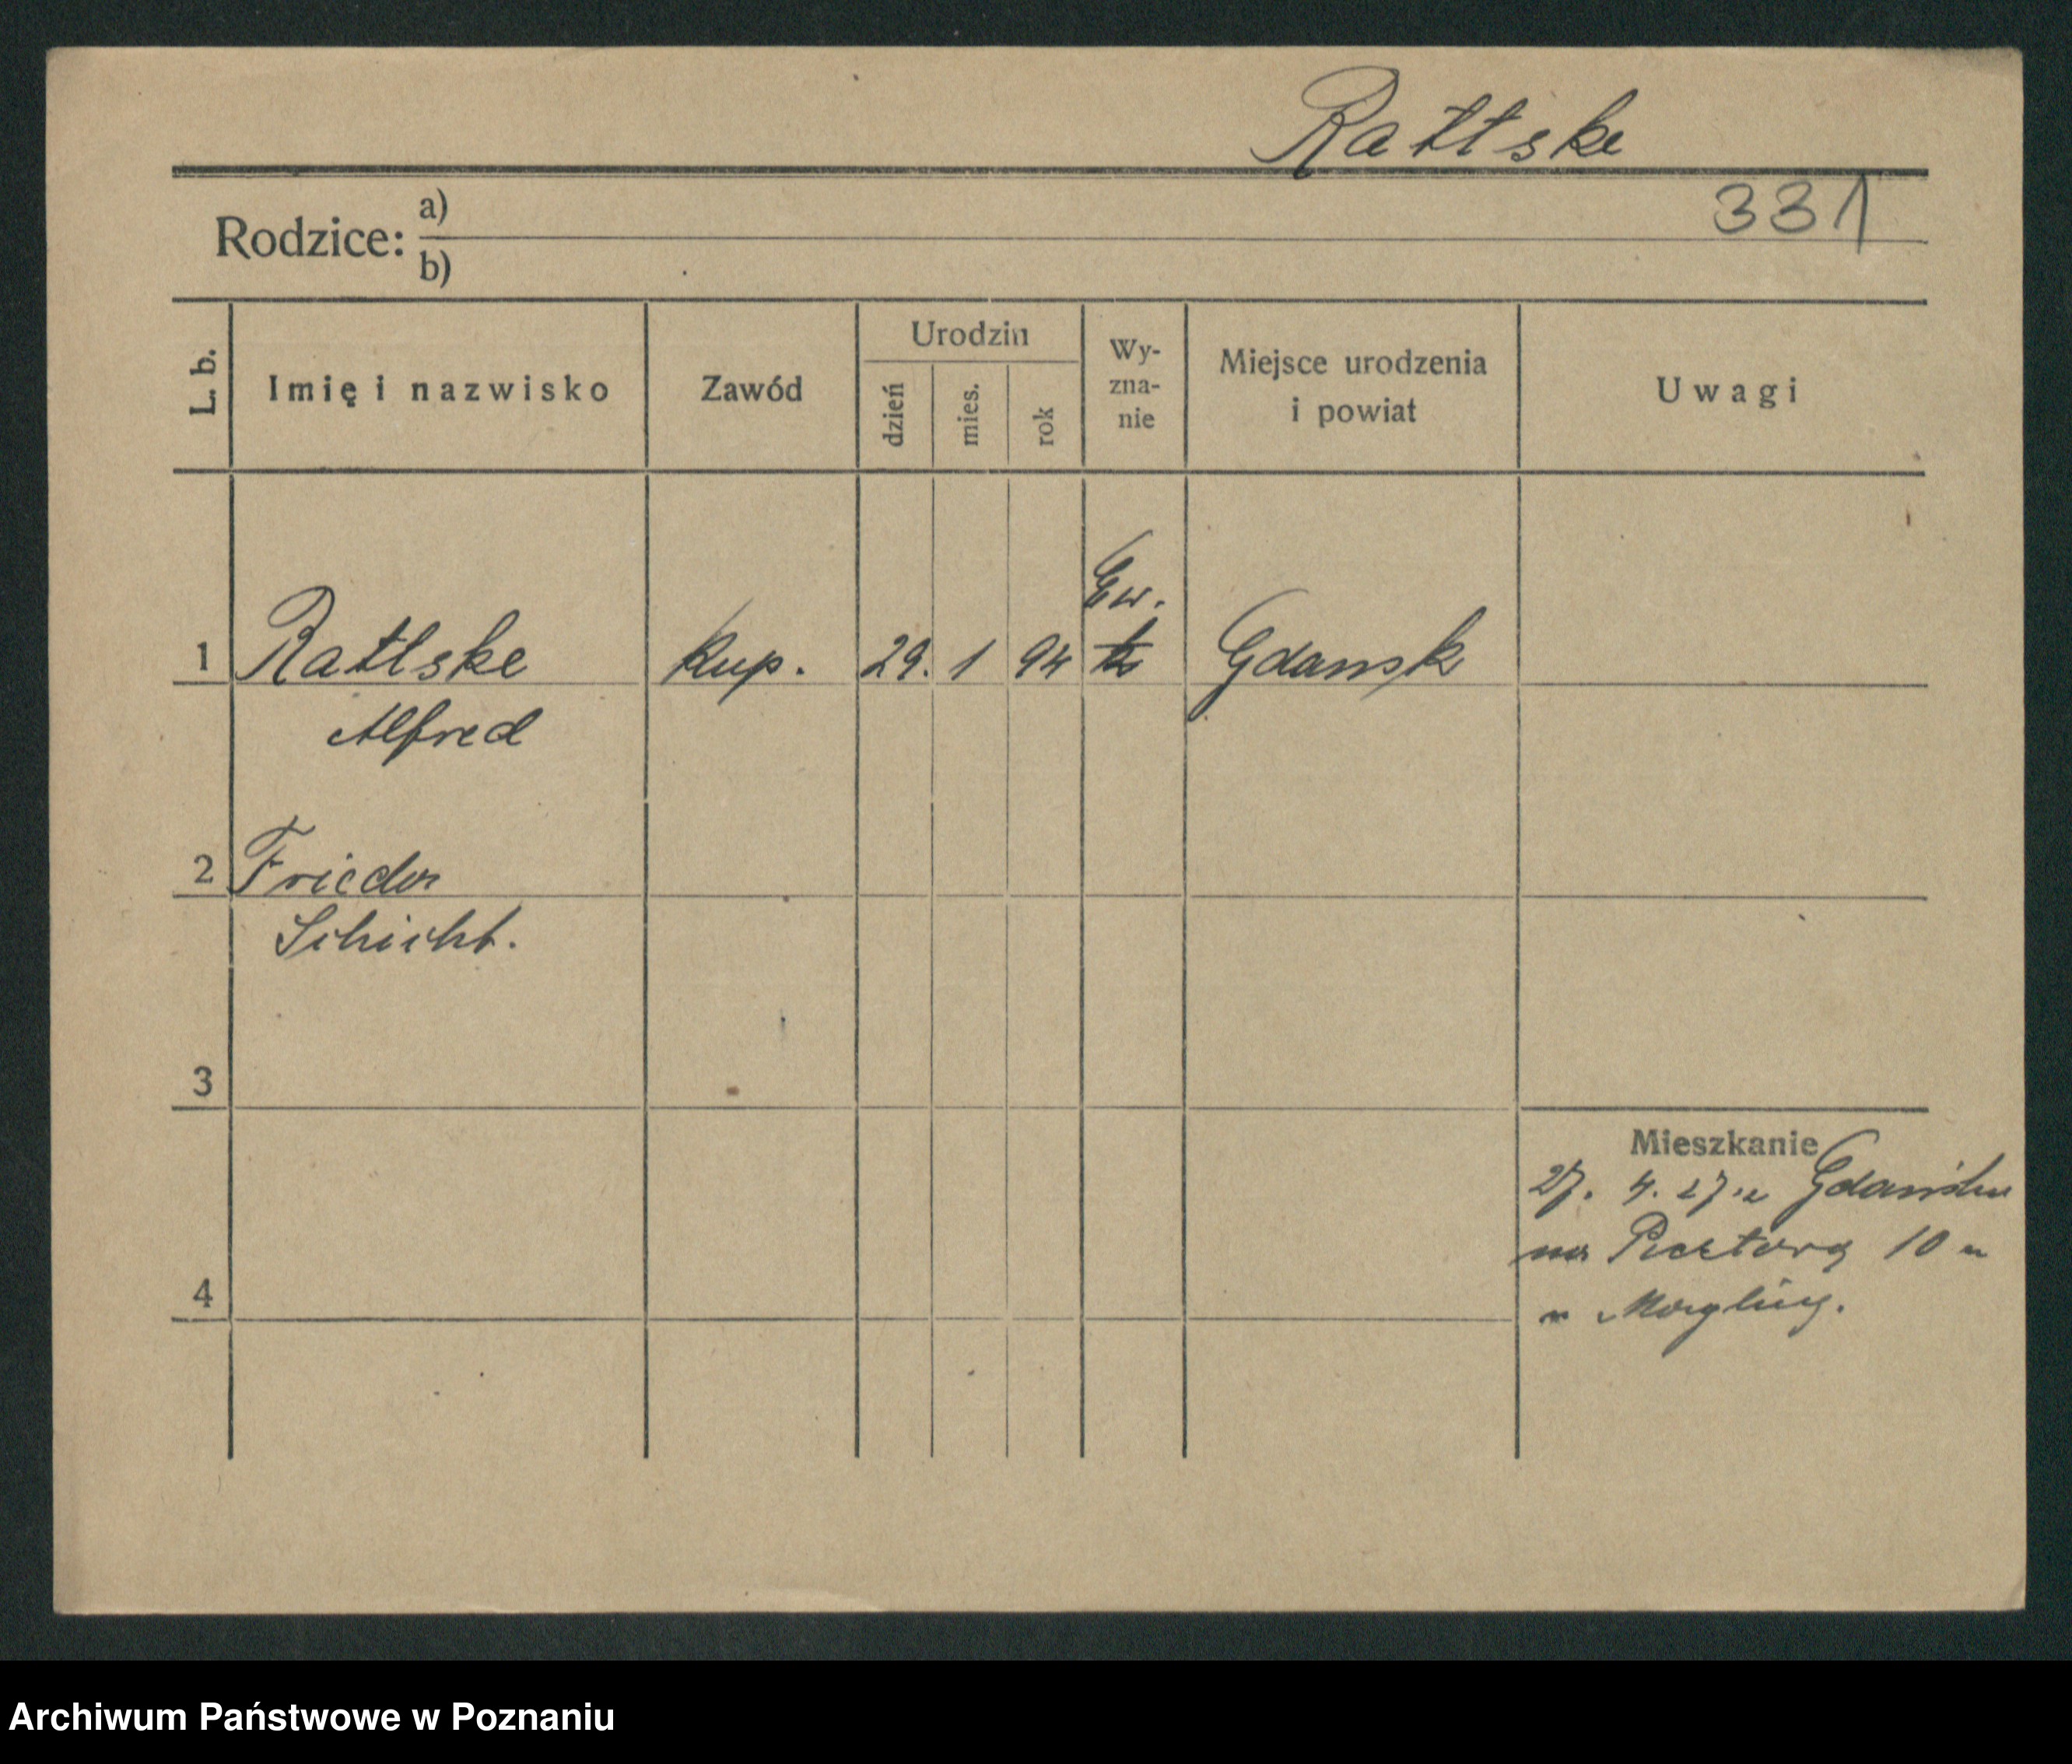 Rattske
331
Rodzice: a)
b)
L. b. Imię i nazwisko Zawód Urodzin dzień mies. rok Wy-zna-nie Miejsce urodzenia i powiat Uwagi
1 Ratlske Kup. 29. 1 94 Ew. Gdansk
Alfred
2 Frieda
Schicht.
3
4
Mieszkanie
27. 4. 27. z Gdańska
na 10
Archiwum Państwowe w Poznaniu